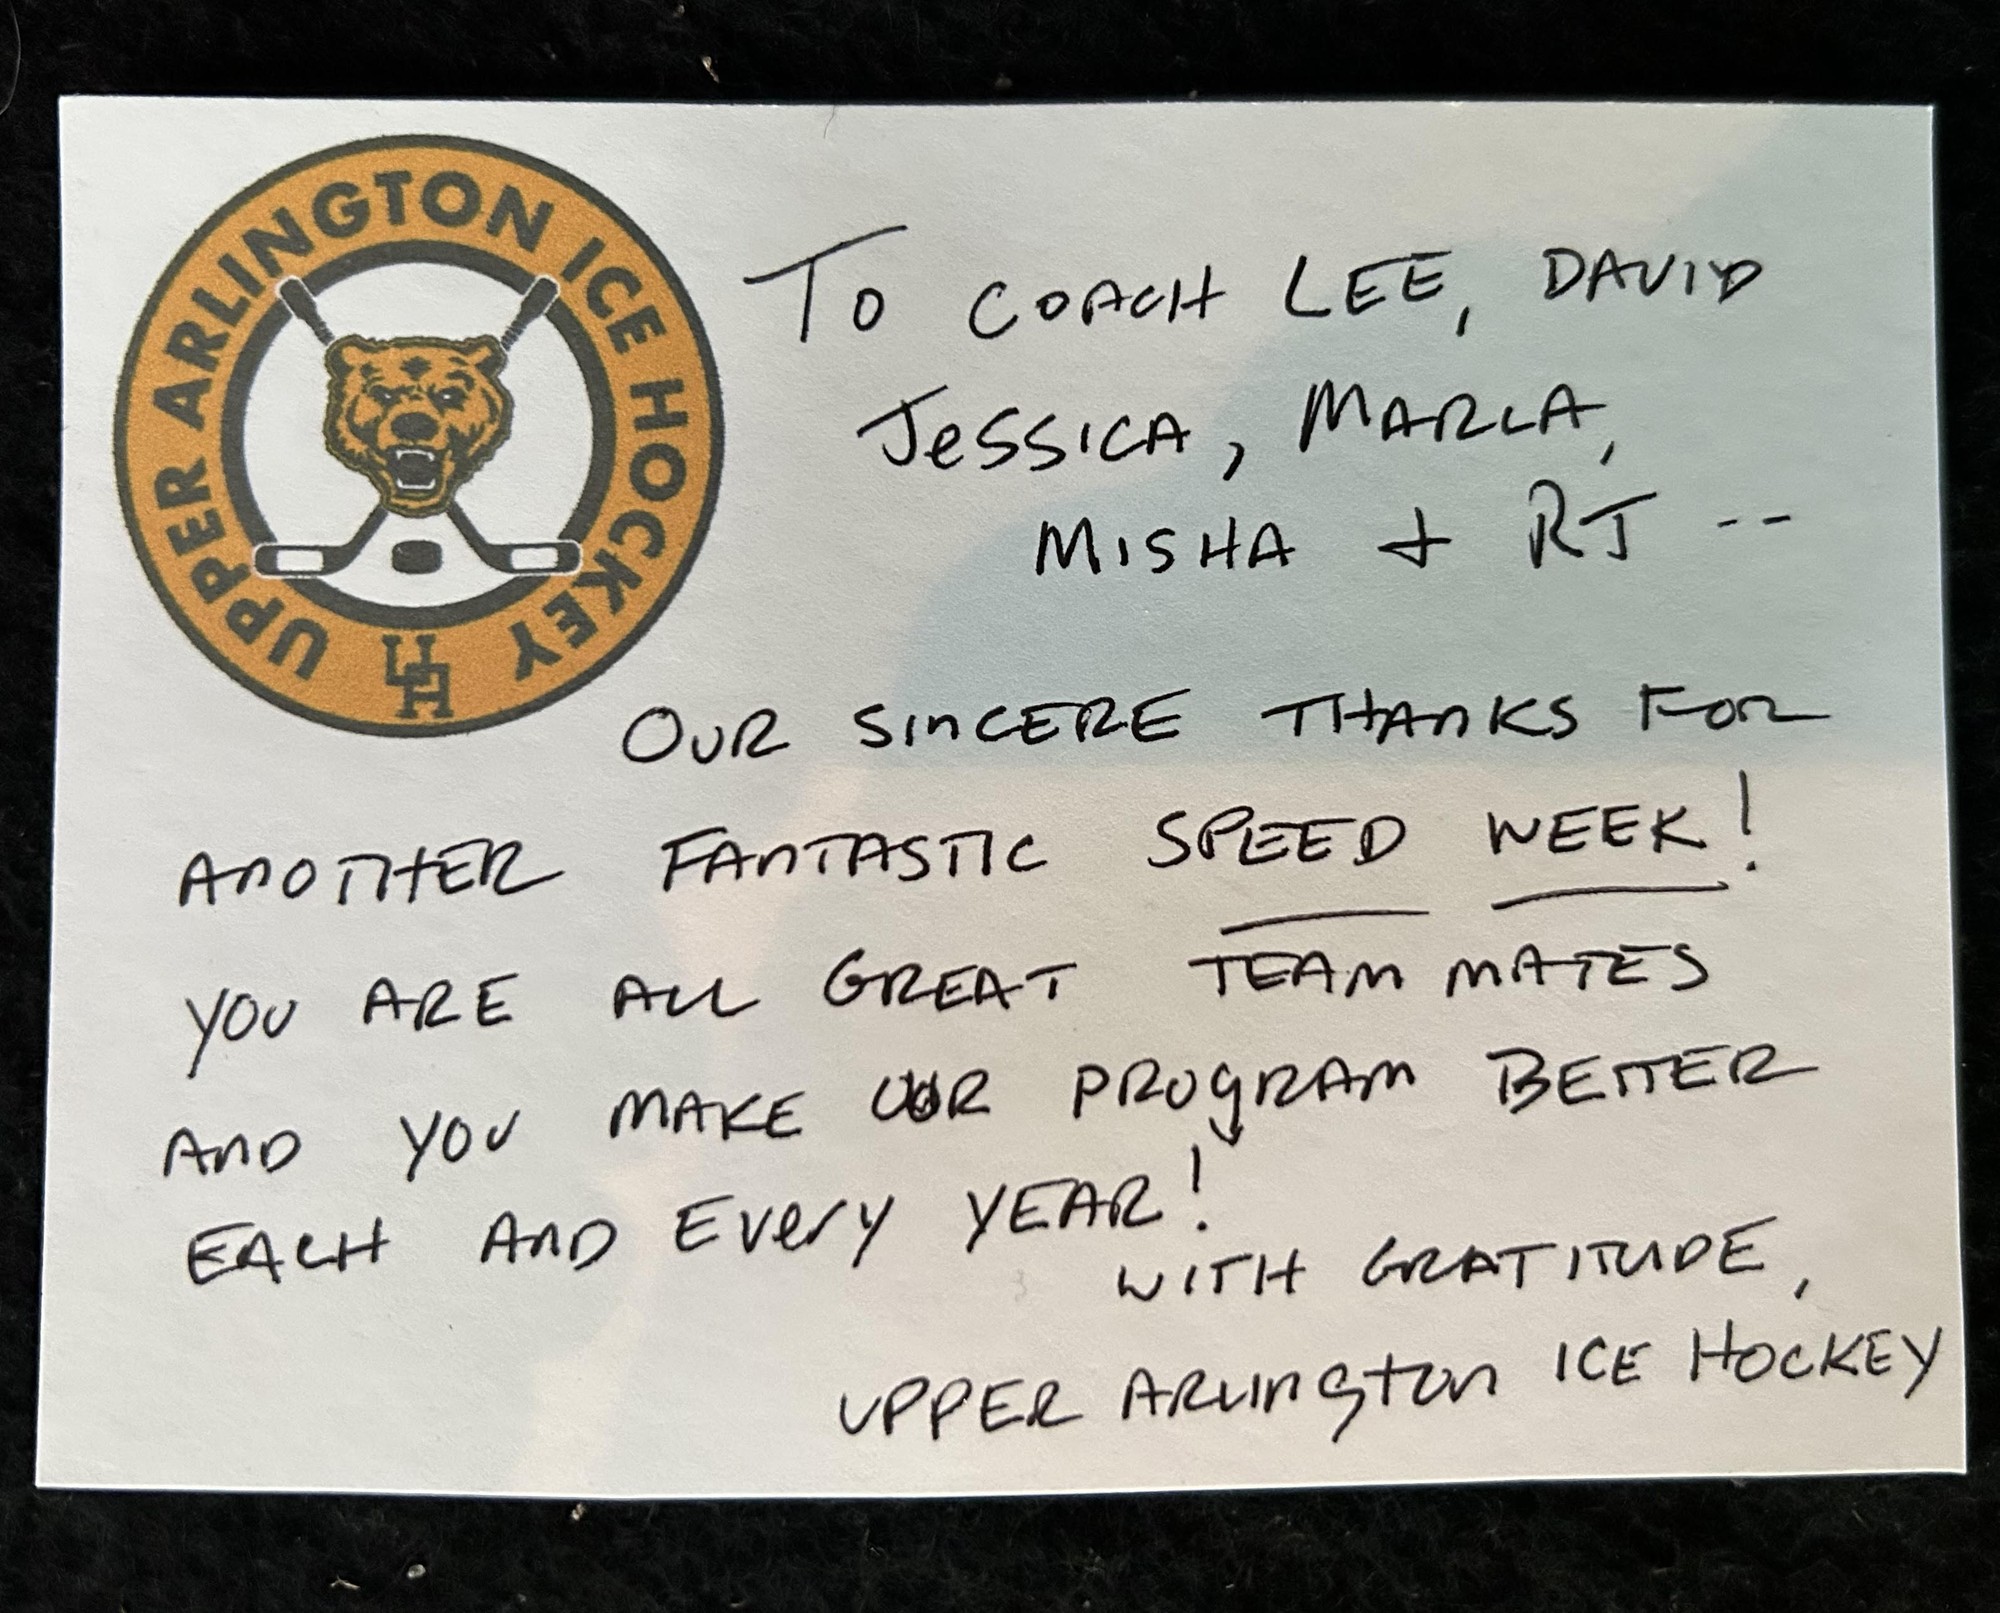 UPPER ARLINGTON ICE HOCKEY
UA
TO COACH LEE, DAVID
JESSICA, MARLA,
MISHA + RJ --
OUR SINCERE THANKS FOR
ANOTHER FANTASTIC SPEED WEEK!
YOU ARE ALL GREAT TEAM MATES
AND YOU MAKE OUR PROGRAM BETTER
EACH AND EVERY YEAR!
WITH GRATITUDE,
UPPER ARLINGTON ICE HOCKEY